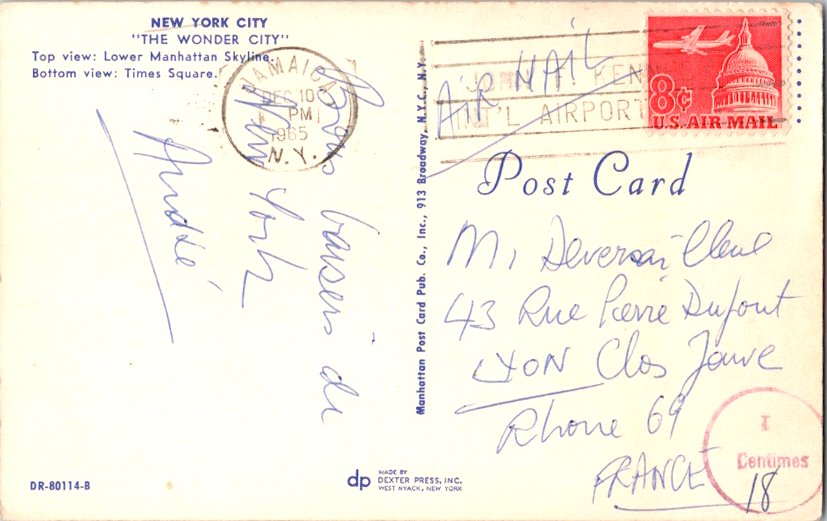 NEW YORK CITY
"THE WONDER CITY"
Top view: Lower Manhattan Skyline.
Bottom view: Times Square.
JAMAICA
DEC 10
PM
1965
N.Y.
INT'L AIRPORT
AIR MAIL
8¢
U.S. AIR MAIL
Post Card
Bons baisers de
New York
André
Manhattan Post Card Pub. Co., Inc., 913 Broadway, N.Y.C., N.Y.
43 Rue Pierre Dupont
LYON Clos
Rhone 69
FRANCE
T
Centimes
18
DR-80114-B
dp
MADE BY
DEXTER PRESS, INC.
WEST NYACK, NEW YORK